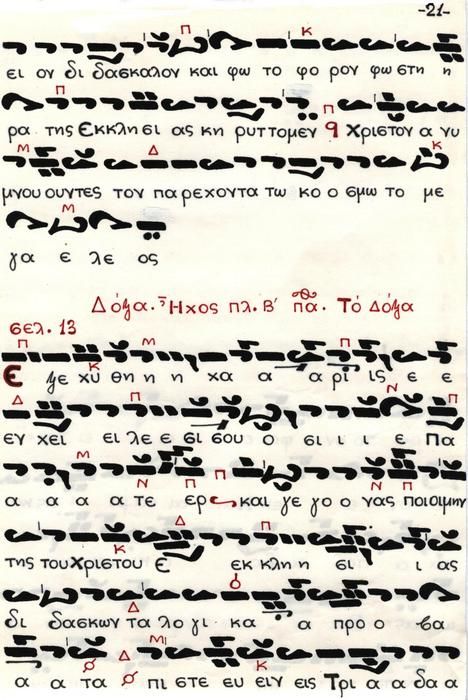 -21-
Π Κ
ει ον δι δασκαλον και φω το φο ρον φω στη η
Π Π
ρα της Εκκλη σι ας κη ρυττομεν 9 Χριστον α νυ
Μ Δ Κ
μνου ουντες τον πα ρεχοντα τω κο ο σμω το με
Μ
γα ε λε ος
Δόξα. Ἦχος πλ. Β΄ πα. Τό Δόξα
σελ. 13
Π Κ Μ Π
Ε ξε χυ θη η η χα α α ρι ις ε ε
Δ Π Ν Π
εν χει ει λε ε σι σου ο σι ι ι ε Πα
Μ Ν Π Π Ν Π
α α α α τε ερ και γε γο ο νας ποιοιμην
Κ Δ Π
της του Χριστου Ε εκ κλη η σι ι ας
Δ
δι δασκων τα λο γι κα α προ ο βα
Μ Δ Κ
α α τα πι στε ευ ειν εις Τρι α α δα α